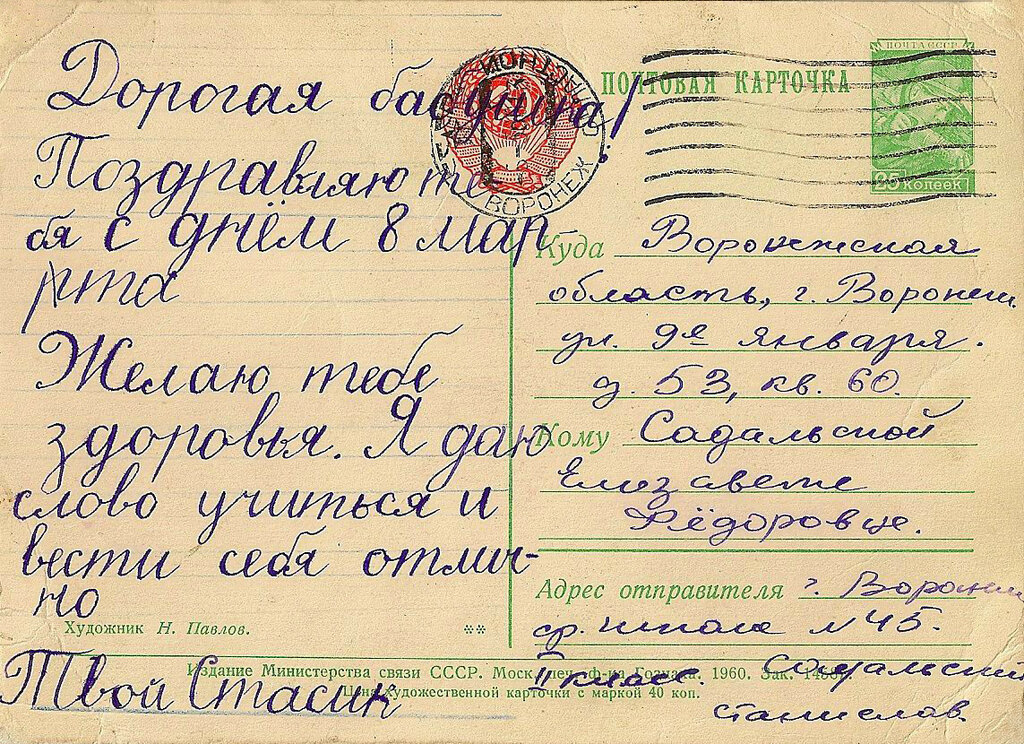 Дорогая бабушка!
Поздравляю те
бя с днём 8 мар-
рта
Желаю тебе
здоровья. Я даю
слово учиться и
вести себя отлич-
но
Художник Н. Павлов.
**
Твой Стасик
ВОРОНЕЖ
ПОЧТОВАЯ КАРТОЧКА
ПОЧТА СССР
25 копеек
Куда Воронежская
область, г. Воронеж.
ул. 9е января.
д. 53, кв. 60.
Кому Садальской
Елизавете
Фёдоровне.
Адрес отправителя г. Воронеж
ср. школа N 45.
II класс. Садальский
Станислав.
Издание Министерства связи СССР. Моск. печ. ф-ка Гознака. 1960. Зак.
Цена художественной карточки с маркой 40 коп.